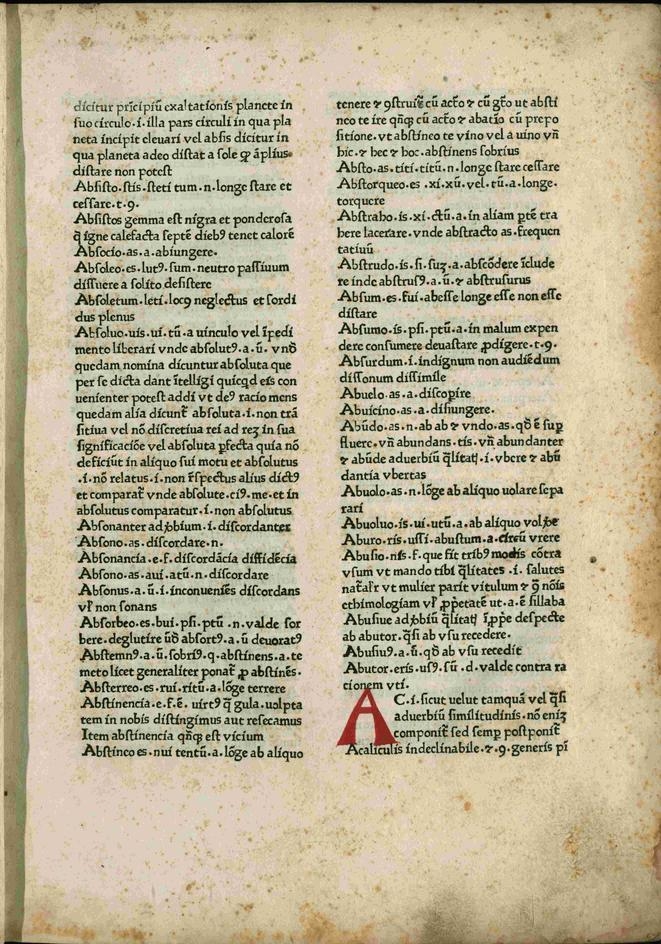 dicitur prīcipiū exaltationis planete in
suo circulo.i.illa pars circuli in qua pla
neta incipit eleuari vel absis dicitur in
qua planeta adeo distat a sole ꝙ āplius
distare non potest
Absisto.stis.steti tum.n.longe stare et
cessare.t.9.
Absistos gemma est nigra et ponderosa
q̄ igne calefacta septē dieb9 tenet calorē
Absocio.as.a.abiungere.
Absoleo.es.lut9.sum.neutro passiuum
dissuere a solito desistere
Absoletum.leti.loc9 neglectus et sordi
dus plenus
Absoluo.uis.ui.tū.a uinculo vel īpedi
mento liberari vnde absolut9.a.ū.vnō
quedam nomina dicuntur absoluta que
per se dicta dant ītelligi quicqd eis con
uenienter potest addi vt de9 racio mens
quedam alia dicunt̄ absoluta.i.non trā
sitiua vel nō discretiua rei ad reꝫ in sua
significaciōe vel absoluta ꝑfecta quia nō
deficiūt in aliquo sui motu et absolutus
.i.nō relatus.i.non r̄spectus alius dict9
et comparat̄ vnde absolute.ci9.me.et in
absolutus comparatur.i.non absolutus
Absonanter adꝟbium.i.discordanter
Absono.as.discordare.n.
Absonancia.e.f.discordācia diffidēcia
Absono.as.aui.atū.n.discordare
Absonus.a.ū.i.inconueniēs discordans
vl̄ non sonans
Absorbeo.es.bui.psi.ptū.n.valde sor
bere.deglutire ūō absort9.a.ū deuorat9
Abstemn9.a.ū.sobri9.q.abstinens.a.te
meto licet generaliter ponat̄ ꝓ abstinēs.
Absterreo.es.rui.ritū.a.lōge terrere
Abstinencia.e.f.ē.uirt9 q̄ gula.uolpta
tem in nobis distingimus aut resecamus
Item abstinencia qn̄qꝫ est vicium
Abstineo es.nui tentū.a.lōge ab aliquo
tenere ⁊ 9struiē cū actō ⁊ cū gtō ut absti
neo te ire qn̄qꝫ cū actō ⁊ abatiō cū prepo
sitione.vt abstineo te vino vel a uino vn̄
hic.⁊ hec ⁊ hoc.abstinens sobrius
Absto.as.titi.titū.n.longe stare cessare
Abstorqueo.es.xi.xū.vel.tū.a.longe.
torquere
Abstraho.is.xi.ctū.a.in aliam ꝑtē tra
here lacerare.vnde abstracto as.frequen
tatiuū
Abstrudo.is.si.suꝫ.a.abscōdere īclude
re inde abstrus9.a.ū.⁊ abstrusurus
Absum.es.fui.abesse longe esse non esse
distare
Absumo.is.psi.ptū.a.in malum expen
dere consumere deuastare ꝓdigere.t.9.
Absurdum.i.indignum non audiēdum
dissonum dissimile
Abuelo.as.a.discopire
Abuicino.as.a.disiungere.
Abūdo.as.n.ab ab ⁊ vndo.as.qō ē suꝑ
fluere.vn̄ abundans.tis.vn̄ abundanter
⁊ abūde aduerbiū q̄litatꝭ.i.vbere ⁊ abū
dantia vbertas
Abuolo.as.n.lōge ab aliquo uolare sepa
rari
Abuoluo.is.ui.utū.a.ab aliquo
Aburo.ris.ussi.abustum.a.circū vrere
Abusio.nis.f.que fit trib9 modis cōtra
vsum vt mando tibi q̄litates.i.salutes
natal̄r vt mulier parit vitulum ⁊ 9 nōis
ethimologiam vl̄ ꝓpetatē ut.a.ē sillaba
Abusiue adꝟbiū q̄litatꝭ īꝓpe despecte
ab abutor.q̄si ab vsu recedere.
Abusiu9.a.ū.qō ab vsu recedit
Abutor.eris.us9.sū.d.valde contra ra
cionem vti.
AC.i.sicut uelut tamquā vel q̄si
aduerbiū similitudinis.nō eniꝫ
componit̄ sed semꝑ postponit̄
Acaliculis indeclinabile.⁊.9.generis pi